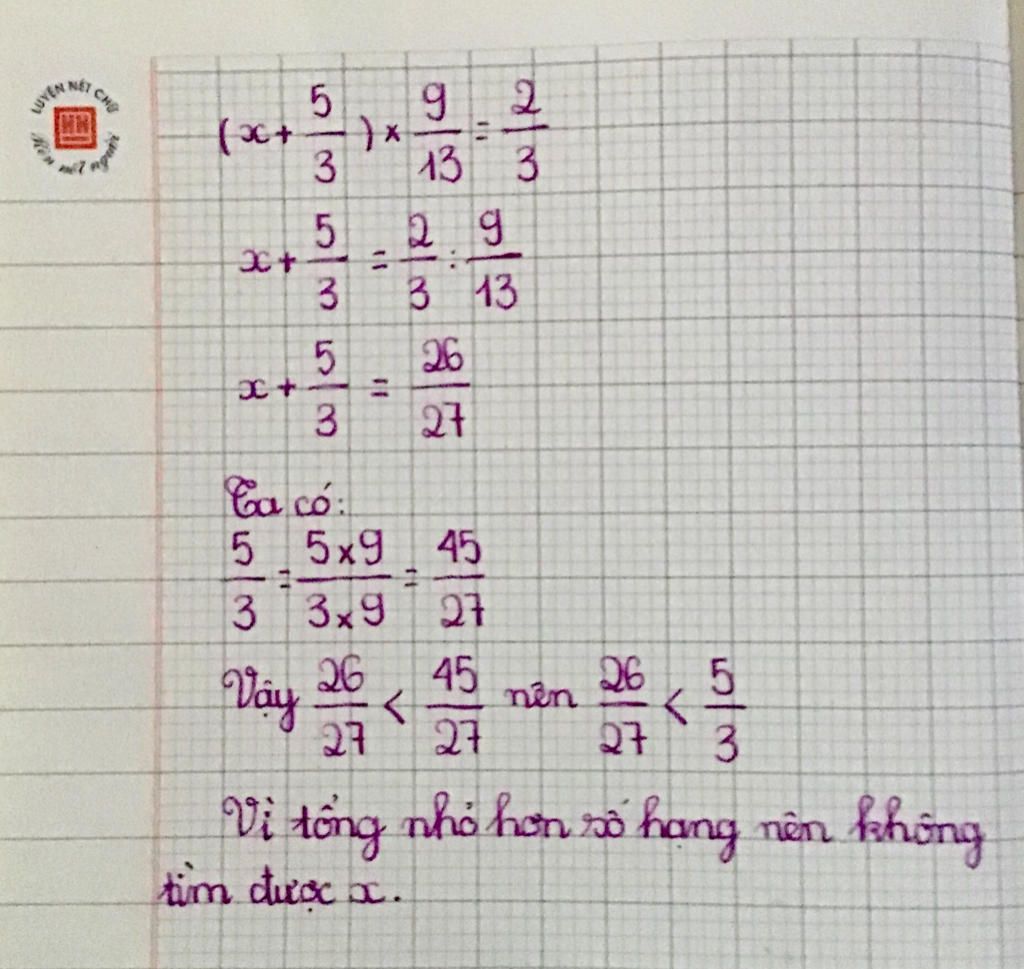 LUYỆN NÉT CHỮ
Rèn nết người
(x + 5/3) × 9/13 = 2/3
x + 5/3 = 2/3 : 9/13
x + 5/3 = 26/27
Ta có:
5/3 = 5×9/3×9 = 45/27
Vậy 26/27 < 45/27 nên 26/27 < 5/3
Vì tổng nhỏ hơn số hạng nên không
tìm được x.